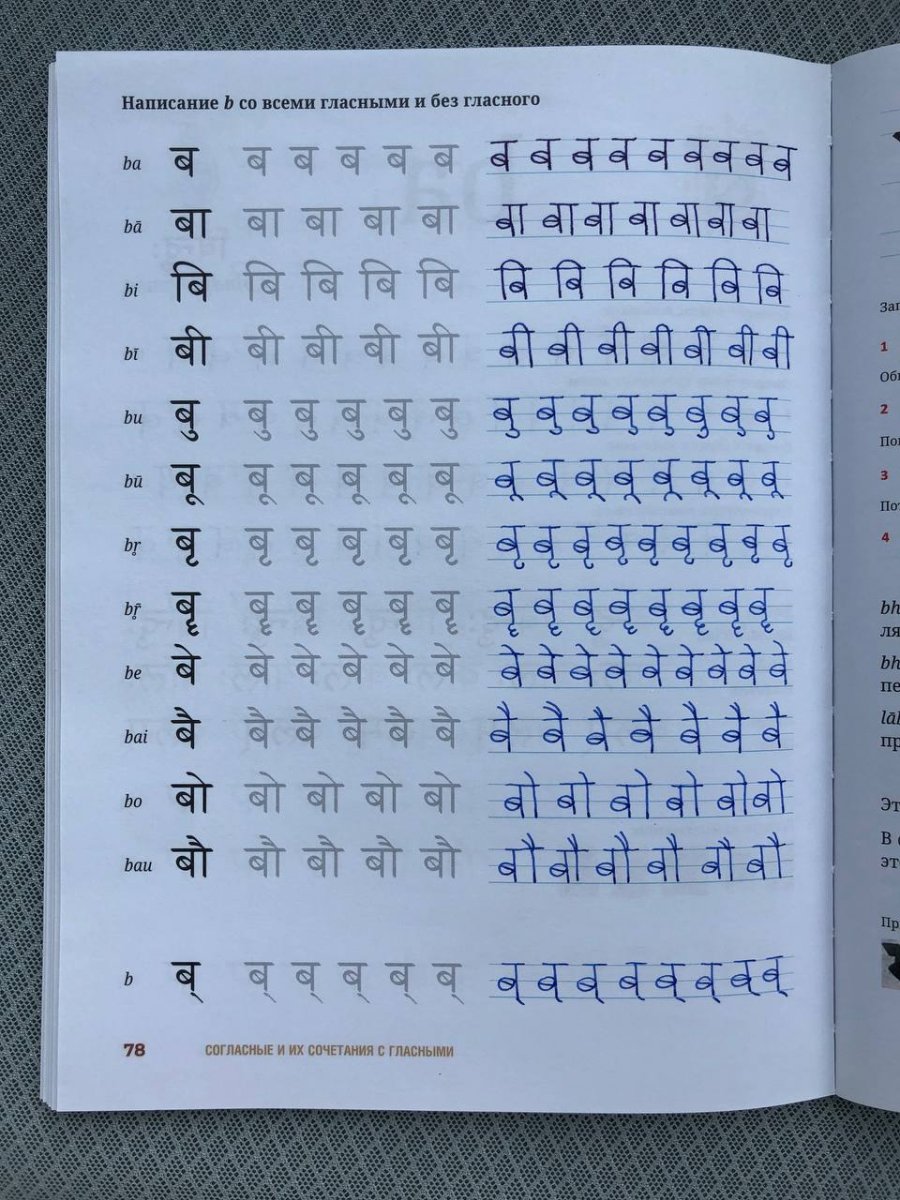 Написание b со всеми гласными и без гласного
ba ब ब ब ब ब ब ब ब ब ब ब ब ब ब ब
bā बा बा बा बा बा बा बा बा बा बा बा बा
bi बि बि बि बि बि बि बि बि बि बि बि
bī बी बी बी बी बी बी बी बी बी बी बी बी
bu बु बु बु बु बु बु बु बु बु बु बु बु बु बु
bū बू बू बू बू बू बू बू बू बू बू बू बू बू बू
br̥ बृ बृ बृ बृ बृ बृ बृ बृ बृ बृ बृ बृ बृ बृ बृ
br̥̄ बॄ बॄ बॄ बॄ बॄ बॄ बॄ बॄ बॄ बॄ बॄ बॄ बॄ बॄ
be बे बे बे बे बे बे बे बे बे बे बे बे बे बे बे
bai बै बै बै बै बै बै बै बै बै बै बै बै बै
bo बो बो बो बो बो बो बो बो बो बो बो
bau बौ बौ बौ बौ बौ बौ बौ बौ बौ बौ बौ
b ब् ब् ब् ब् ब् ब् ब् ब् ब् ब् ब् ब् ब् ब्
78 СОГЛАСНЫЕ И ИХ СОЧЕТАНИЯ С ГЛАСНЫМИ
1
2
3
4
bh
ля
bh
пе
пр
Эт
В
эт
Пр